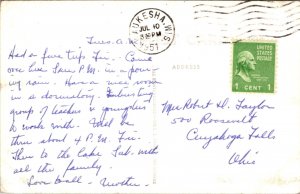 WAUKESHA, WIS.
JUL 10
8 30 PM
1951
Tues. A.M.
Had a fine trip Fri. Came
over here Sun. P.M. in a pour-
ing rain. Have nice room
in a dormitory. Interesting
group of teachers & youngsters
to work with. Will be
thru about 4 P.M. Fri.
Then to the Lake Sub. with
all the family.
Love to all - Mother.
ADDRESS
Mrs Robert D. Taylor
500 Roosevelt
Cuyahoga Falls
Ohio
UNITED STATES
POSTAGE
1 CENT 1